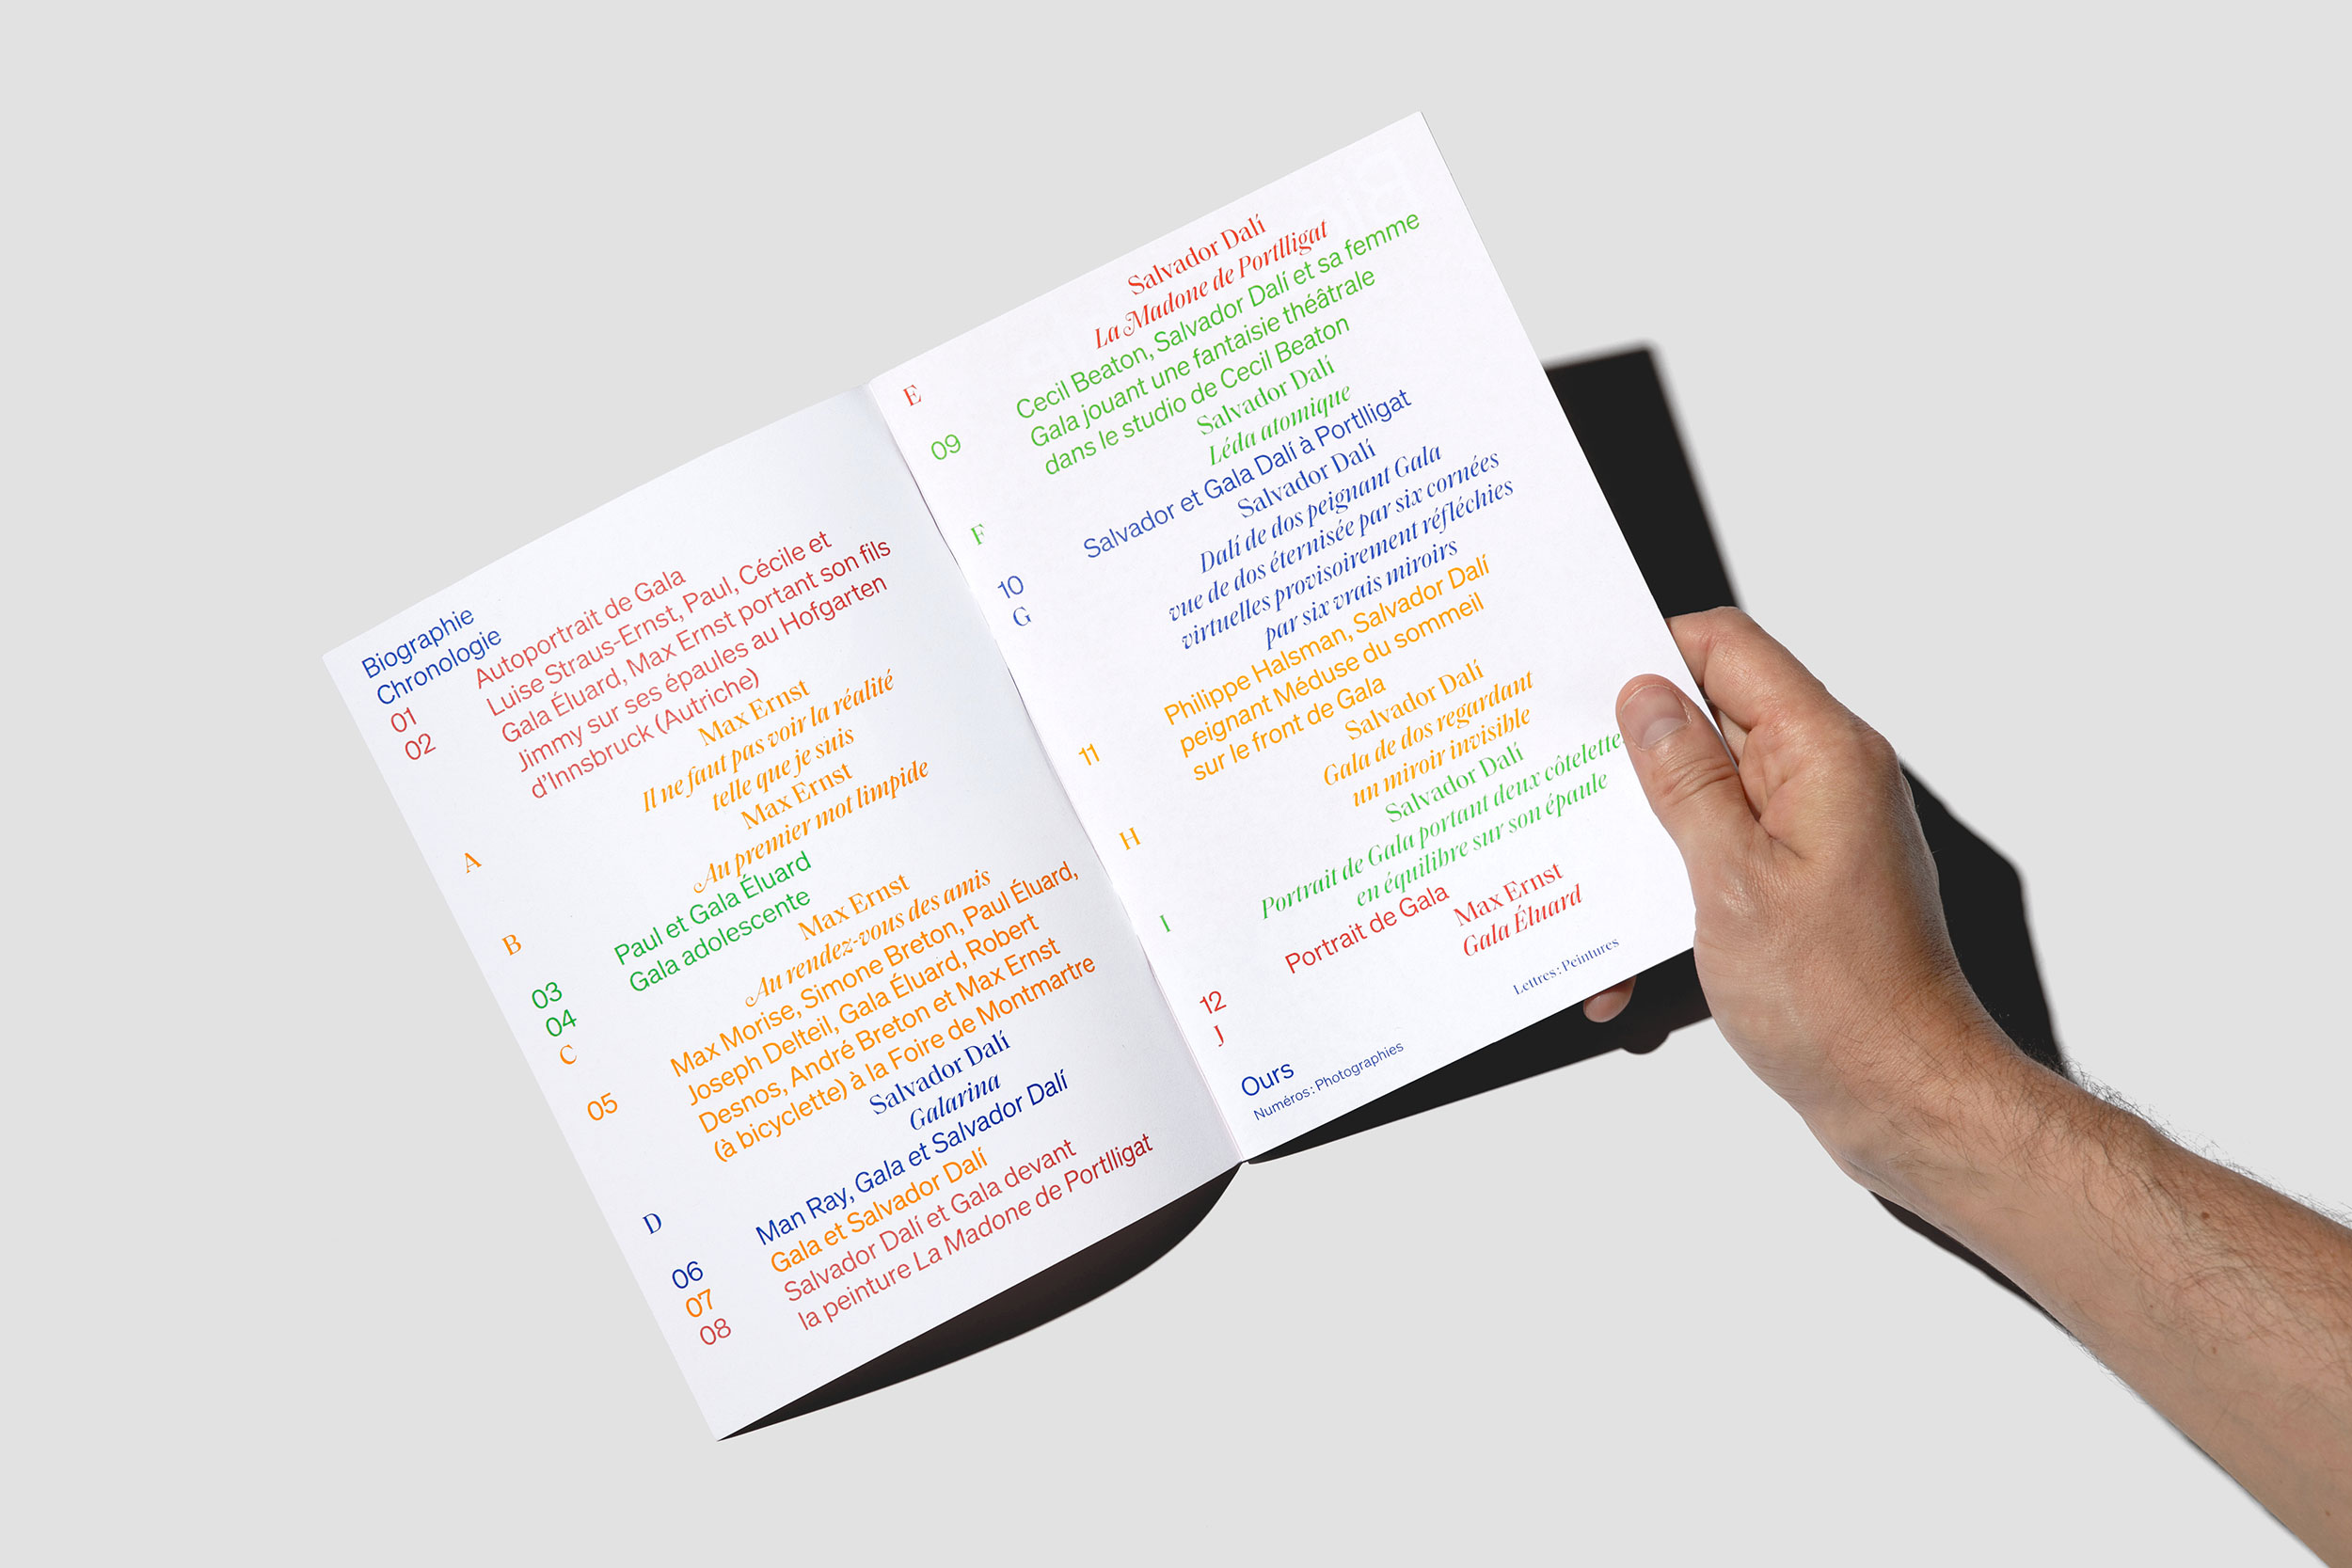 Biographie
Chronologie
01 Autoportrait de Gala
02 Luise Straus-Ernst, Paul, Cécile et
Gala Éluard, Max Ernst portant son fils
Jimmy sur ses épaules au Hofgarten
d'Innsbruck (Autriche)
A Max Ernst
Il ne faut pas voir la réalité
telle que je suis
B Max Ernst
Au premier mot limpide
03 Paul et Gala Éluard
04 Gala adolescente
C Max Ernst
Au rendez-vous des amis
05 Max Morise, Simone Breton, Paul Éluard,
Joseph Delteil, Gala Éluard, Robert
Desnos, André Breton et Max Ernst
(à bicyclette) à la Foire de Montmartre
D Salvador Dalí
Galarina
06 Man Ray, Gala et Salvador Dalí
07 Gala et Salvador Dalí
08 Salvador Dalí et Gala devant
la peinture La Madone de Portlligat
E Salvador Dalí
La Madone de Portlligat
09 Cecil Beaton, Salvador Dalí et sa femme
Gala jouant une fantaisie théâtrale
dans le studio de Cecil Beaton
F Salvador Dalí
Léda atomique
10 Salvador et Gala Dalí à Portlligat
G Salvador Dalí
Dalí de dos peignant Gala
vue de dos éternisée par six cornées
virtuelles provisoirement réfléchies
par six vrais miroirs
11 Philippe Halsman, Salvador Dalí
peignant Méduse du sommeil
sur le front de Gala
H Salvador Dalí
Gala de dos regardant
un miroir invisible
I Salvador Dalí
Portrait de Gala portant deux côtelette
en équilibre sur son épaule
12 Portrait de Gala
J Max Ernst
Gala Éluard
Ours
Numéros : Photographies
Lettres : Peintures